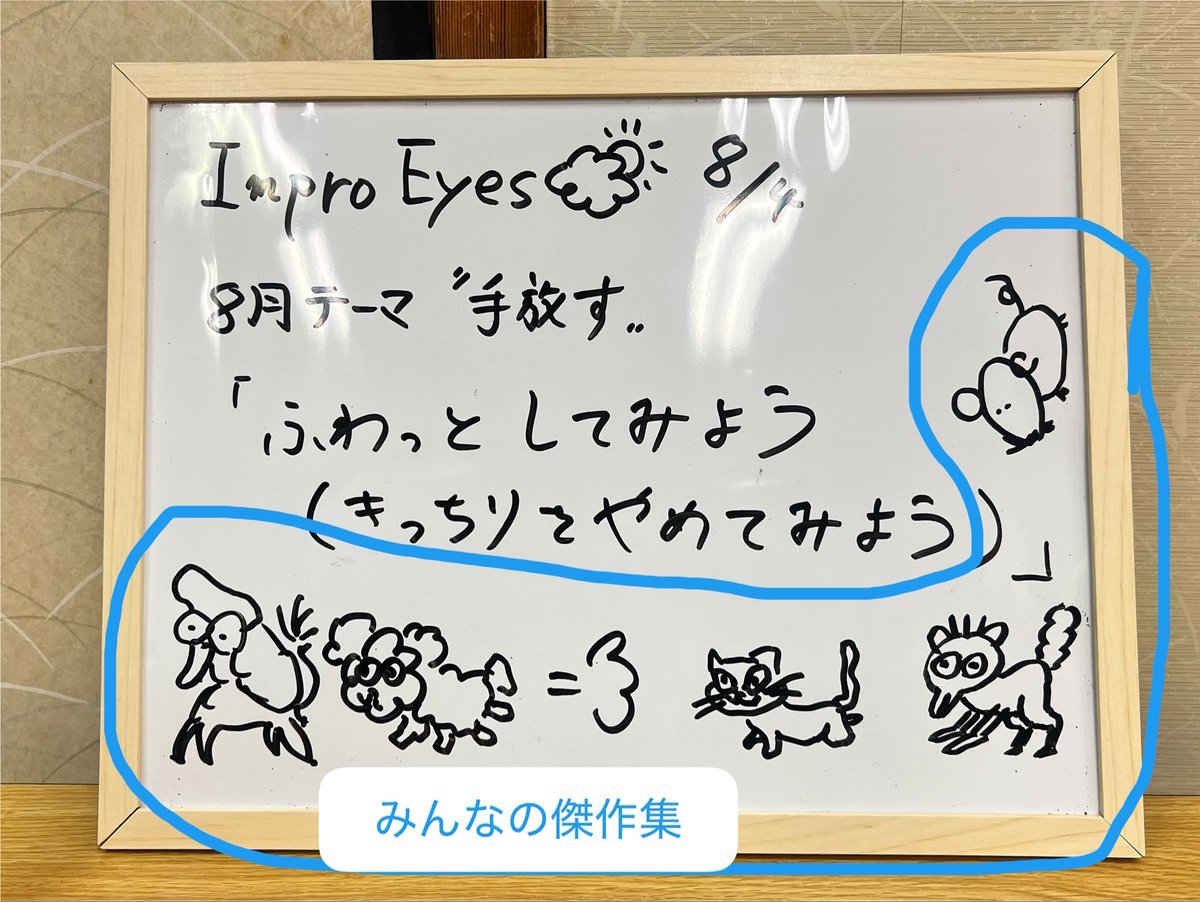 Impro Eyes 8/4
8月テーマ〝手放す〟
「ふわっとしてみよう
(きっちりをやめてみよう)」
みんなの傑作集